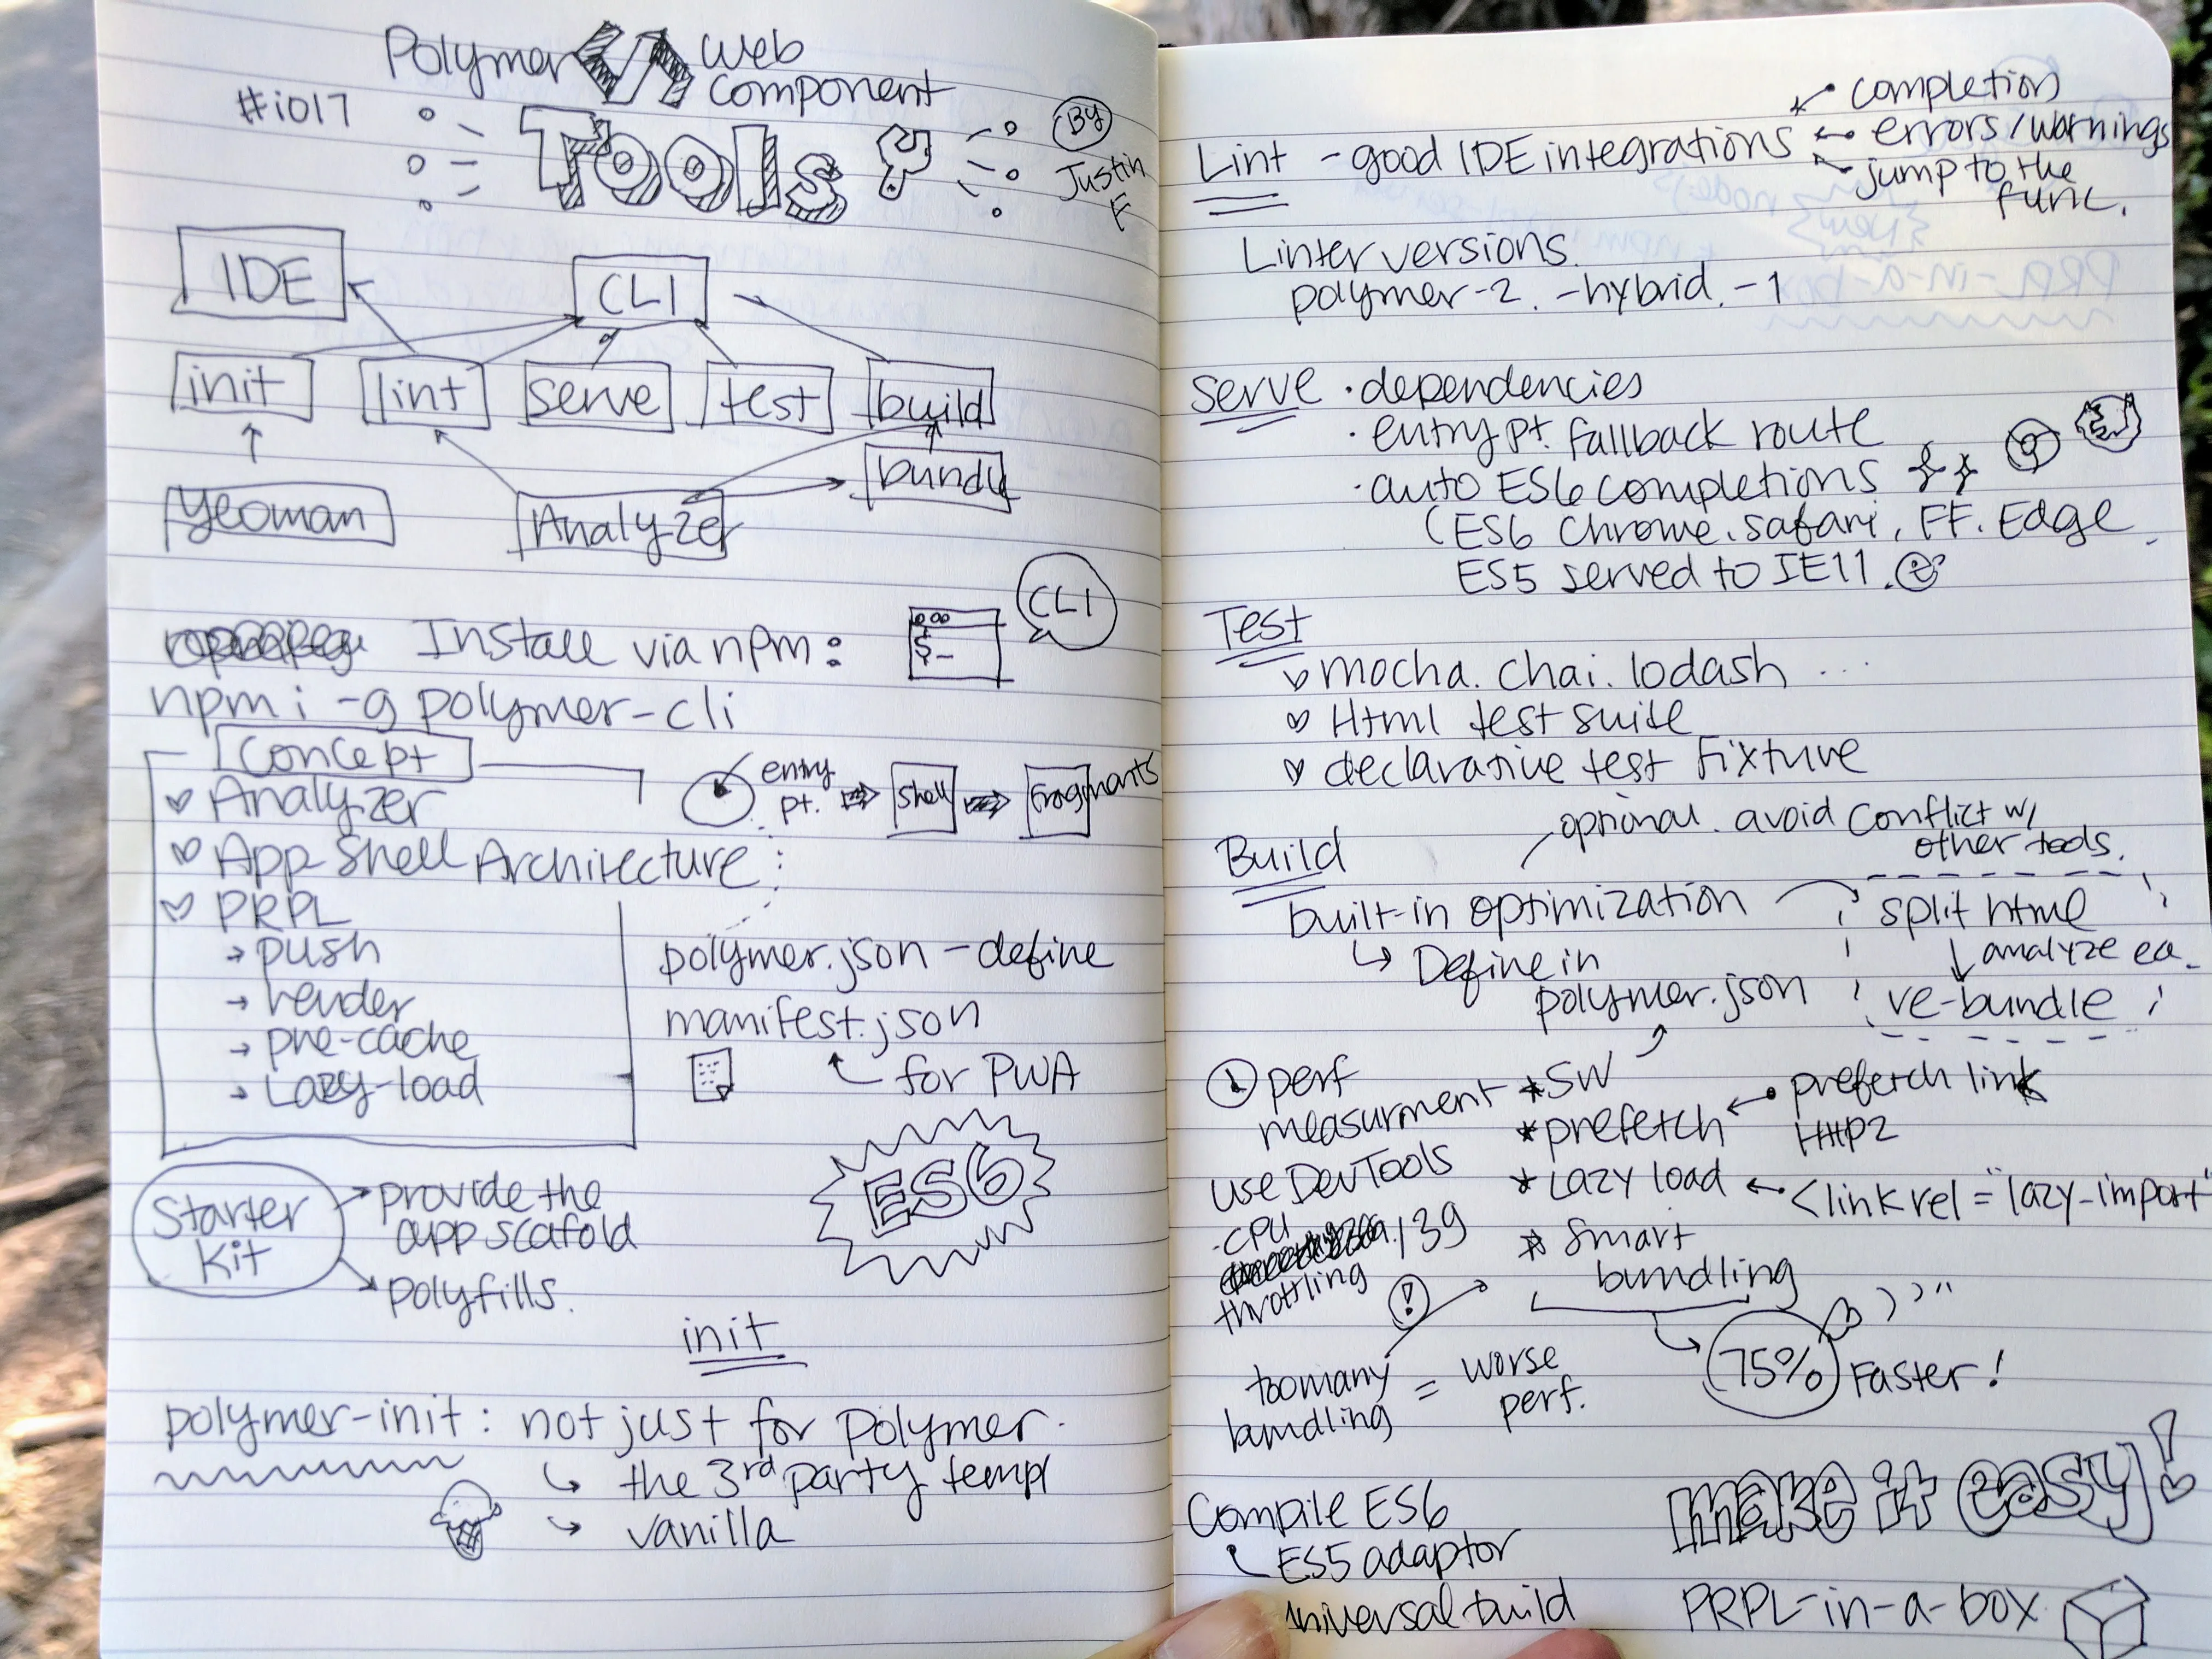 Polymer </> Web
component
#io17
Tools
By
Justin
F
IDE
CLI
init
lint
serve
test
build
bundl
yeoman
Analyzer
Install via npm:
$_
CLI
npm i -g polymer-cli
Concept
Analyzer
App Shell Architecture
PRPL
→ push
→ render
→ pre-cache
→ Lazy-load
entry
pt.
Shell
Fragments
polymer.json - define
manifest.json
for PWA
ES6
Starter
Kit
provide the
app scafold
polyfills.
init
polymer-init: not just for polymer.
the 3rd party templ
vanilla
Lint - good IDE integrations
completion
errors/warnings
jump to the
func.
Linter versions.
polymer-2. -hybrid. -1
serve · dependencies
· entry pt. fallback route
· auto ES6 completions
(ES6 Chrome. safari, FF. Edge
ES5 served to IE11.
Test
mocha. chai. lodash ...
Html test suite
declarative test fixture
Build
optional. avoid conflict w/
other tools.
built-in optimization
Define in
polymer.json
split html
↓ analyze ea.
re-bundle
perf
measurment
use DevTools
·CPU
139
throttling
*SW
*prefetch ← prefetch link
HTTP2
*Lazy load ← <link rel="lazy-import"
* smart
bundling
!
too many
bundling
= worse
perf.
75% Faster!
Compile ES6
ES5 adaptor
universal build
make it easy!
PRPL-in-a-box